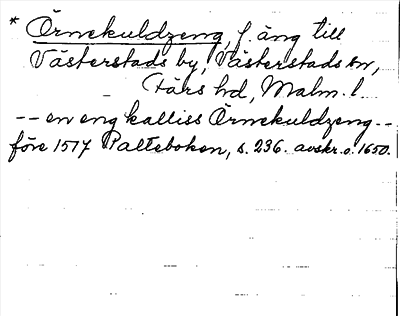 * Örnekuldzeng, f. äng till
Västerstads by, Västerstads sn,
Färs hd, Malm. l.
-- en eng kalliss Örnekuldzeng --
före 1517 Palteboken, s. 236. avskr. o. 1650.